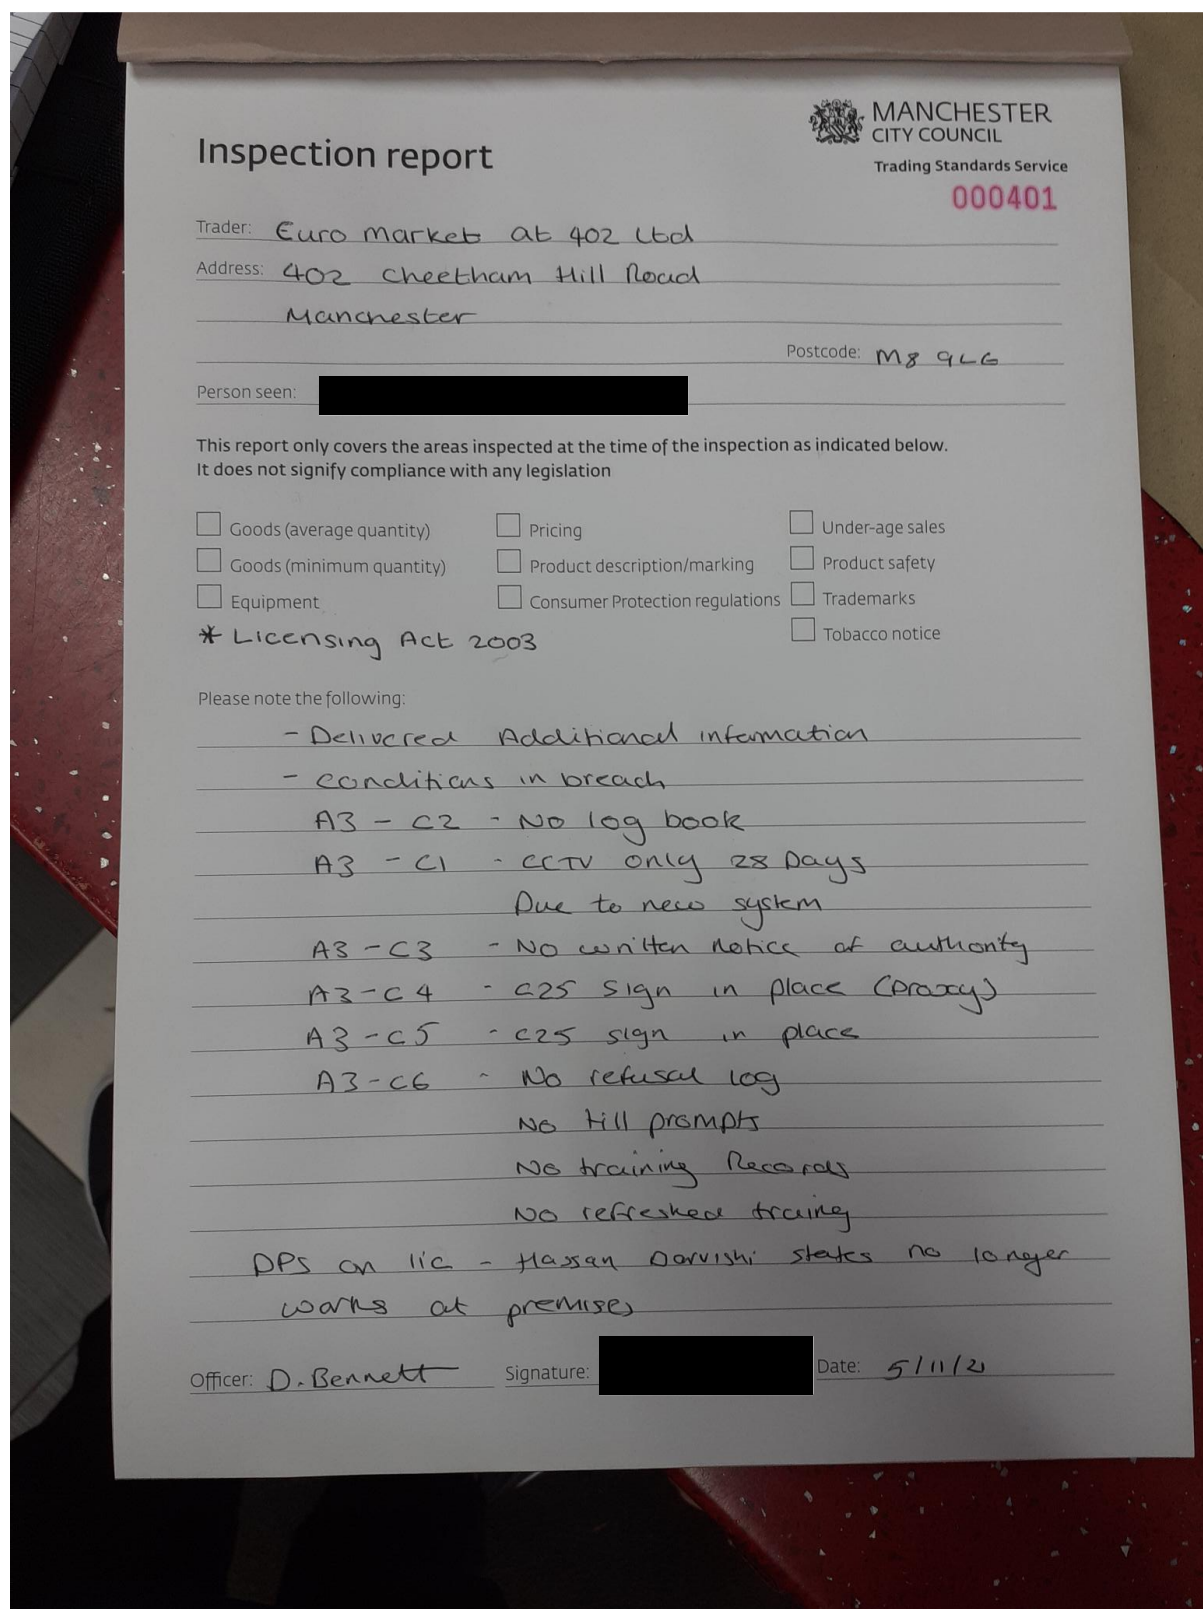 MANCHESTER
CITY COUNCIL
Inspection report
Trading Standards Service
000401
Trader: Euro Market at 402 Ltd
Address: 402 Cheetham Hill Road
Manchester
Postcode: M8 9LG
Person seen:
This report only covers the areas inspected at the time of the inspection as indicated below.
It does not signify compliance with any legislation
Goods (average quantity) Pricing Under-age sales
Goods (minimum quantity) Product description/marking Product safety
Equipment Consumer Protection regulations Trademarks
* Licensing Act 2003 Tobacco notice
Please note the following:
- Delivered Additional information
- conditions in breach
A3 - C2 - No log book
A3 - C1 - CCTV only 28 Days
Due to new system
A3 - C3 - No written notice of authority
A3 - C4 - C25 sign in place (Proxy)
A3 - C5 - C25 sign in place
A3 - C6 - No refusal log
No till prompts
No training Records
No refreshed traing
DPS on lic - Hassan Darvishi states no longer
works at premises
Officer: D. Bennett Signature: Date: 5/11/21